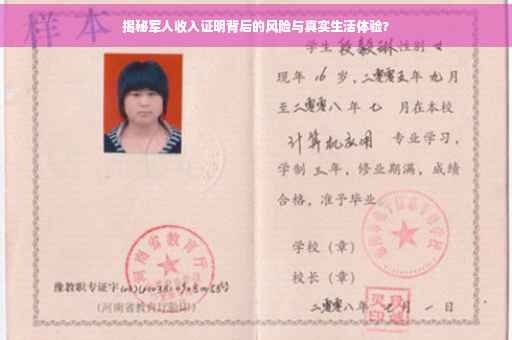 揭秘军人收入证明背后的风险与真实生活体验？
样本
学生 段毅琳 性别 女
现年 16 岁，二零零五年 九 月
至二零零八 年 七 月在本校
计算机应用 专业学习，
学制 三 年，修业期满，成绩
合格，准予毕业
学校（章）
校长（章）
二零零八年 七 月 一 日
河南省教育厅
豫教职专证字
（河南省教育厅验印）